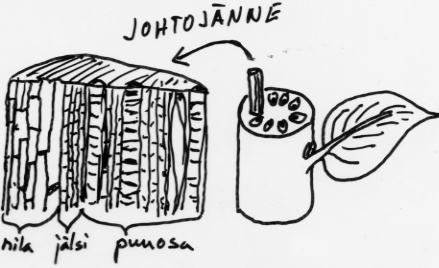 JOHTOJÄNNE
nila jälsi puuosa